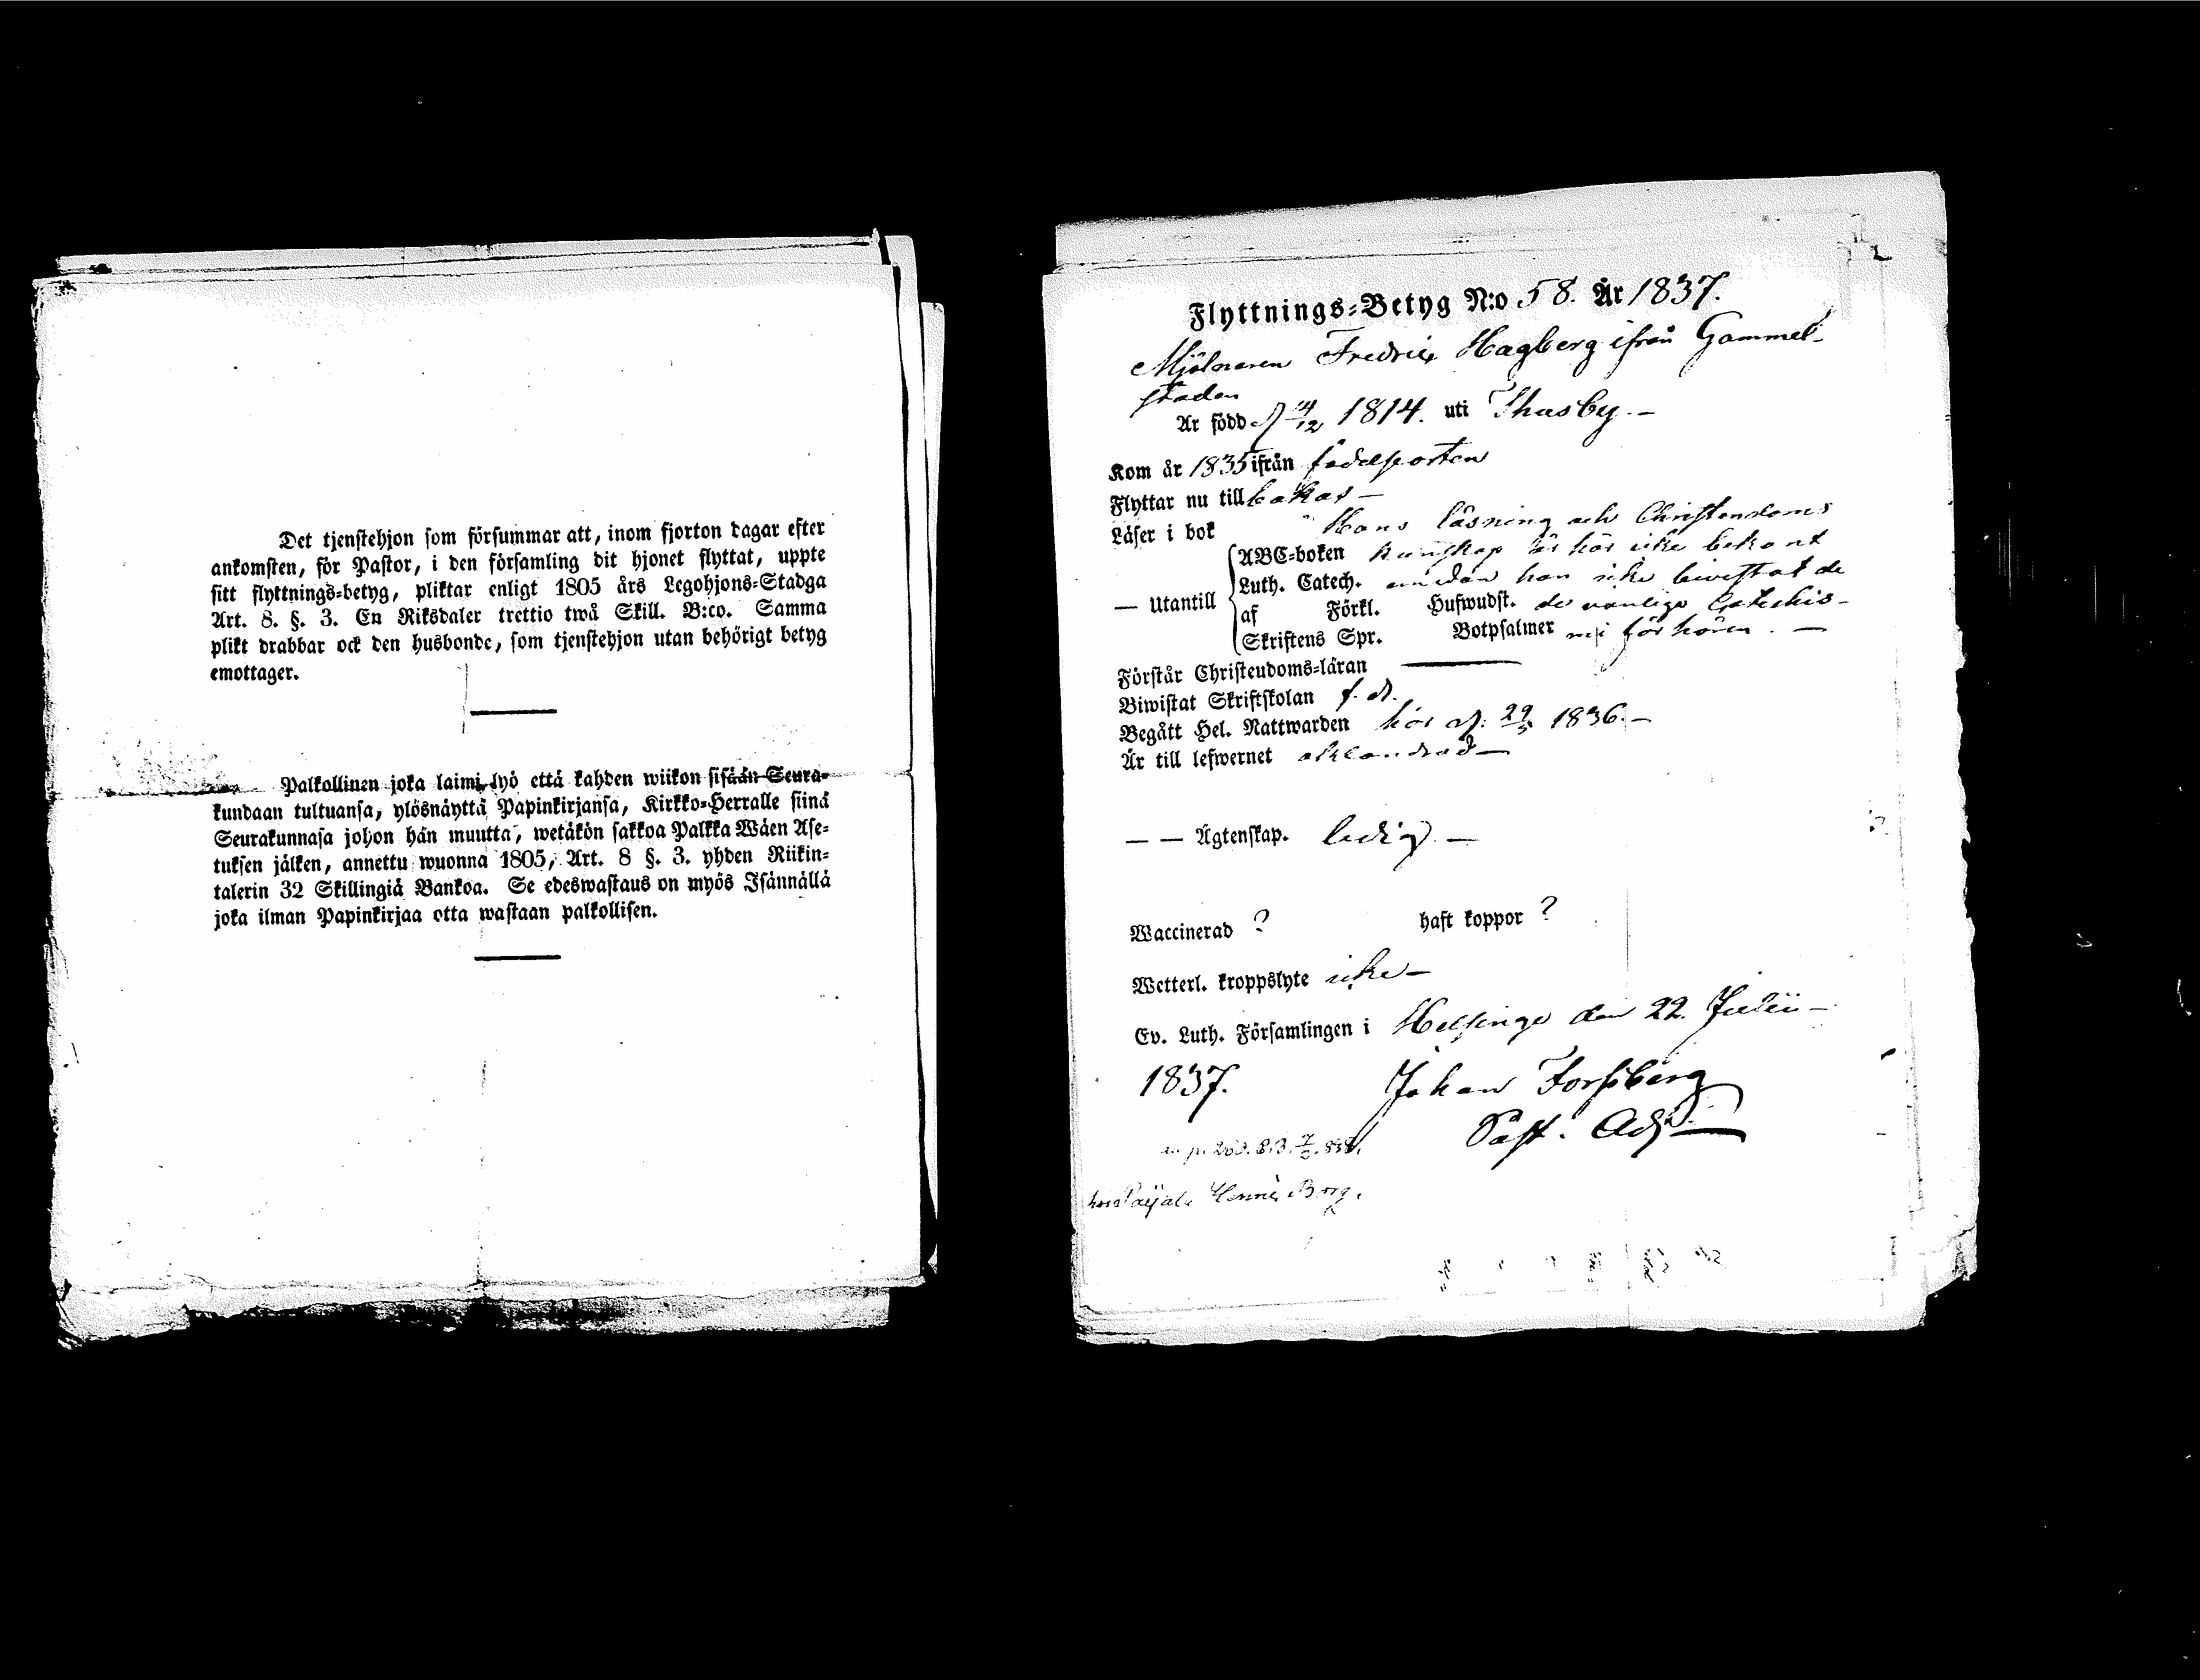 Det tjenstehjon som försummar att, inom fjorton dagar efter
ankomsten, för Pastor, i den församling dit hjonet flyttat, uppte
sitt flyttnings-betyg, pliktar enligt 1805 års Legohjons-Stadga
Art. 8. §. 3. En Riksdaler trettio twå Skill. B:co. Samma
plikt drabbar ock den husbonde, som tjenstehjon utan behörigt betyg
emottager.
Palkollinen joka laimi lyö että kahden wiikon sisään Seura-
kundaan tultuansa, ylösnäyttä Papinkirjansa, Kirkko-Herralle siinä
Seurakunnasa johon hän muutta, wetäkön sakkoa Palkka Wäen Ase-
tuksen jälken, annettu wuonna 1805, Art. 8 §. 3. yhden Riikin-
talerin 32 Skillingiä Bankoa. Se edeswastaus on myös Isännällä
joka ilman Papinkirjaa otta wastaan palkollisen.
Flyttnings-Betyg N:o 58. År 1837.
Mjölnaren Fredric Hagberg ifrån Gammel-
staden
Är född d 14/12 1814. uti Thusby.—
Kom år 1835 ifrån födelseorten
Flyttar nu till bakas—
Läser i bok Hans läsning och Christendoms
ABC-boken kunskap är här icke bekant
— Utantill Luth. Catech. emedan han icke bivistat de
af Förkl. Hufwudst. de vanliga Catechis-
Skriftens Spr. Botpsalmer mi förhören. —
Förstår Christendoms-läran —
Biwistat Skriftskolan
Begått Hel. Nattwarden här d. 29/5 1836.—
Är till lefwernet oklandrad—
— — Ägtenskap. ledig.—
Waccinerad ? haft koppor ?
Wetterl. kroppslyte icke—
Ev. Luth. Församlingen i Helsinge den 22. Julii—
1837. Johan Forsberg
Past. Adj.